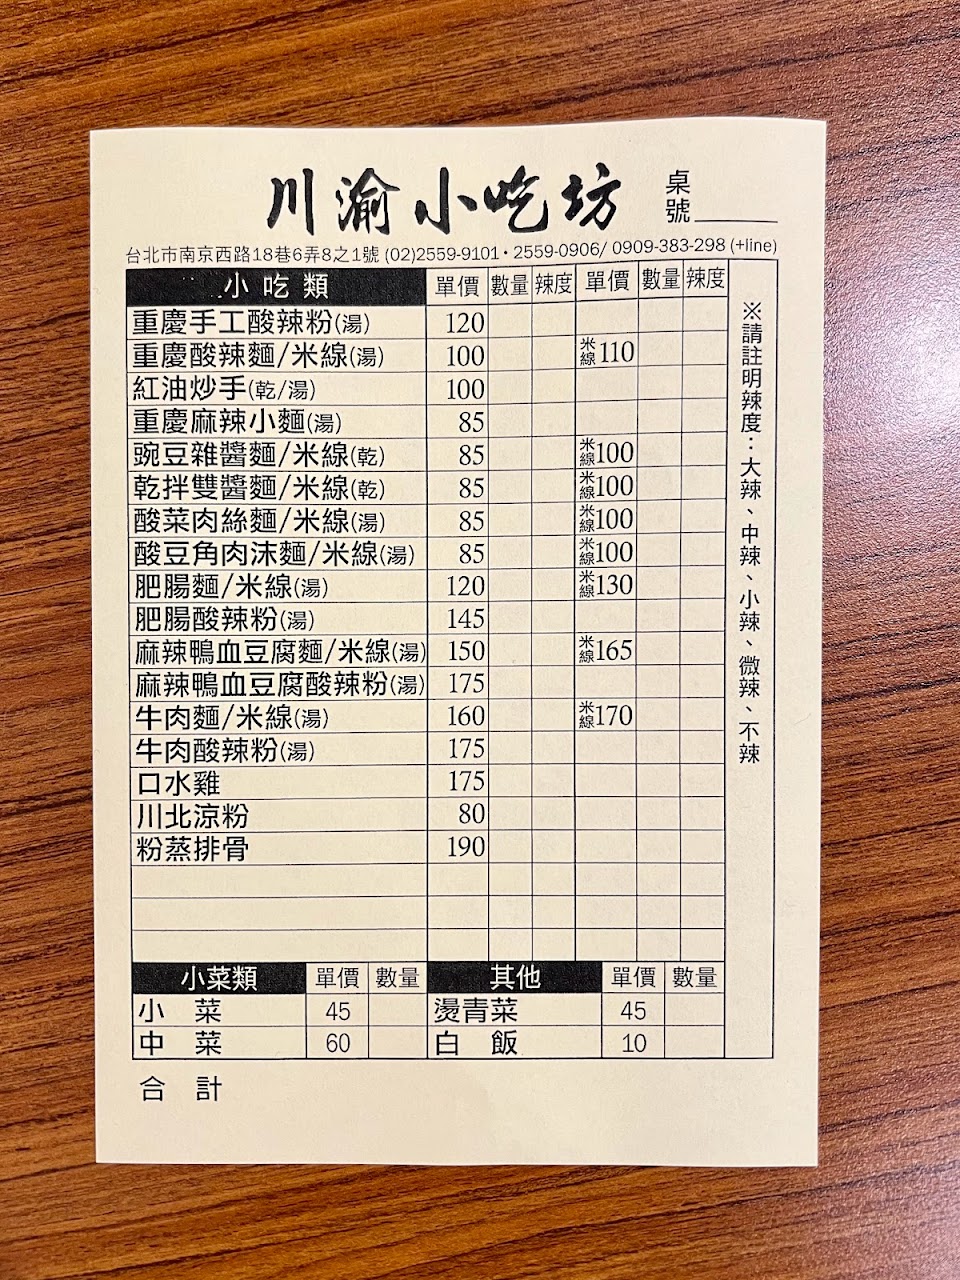 川渝小吃坊 桌號
台北市南京西路18巷6弄8之1號 (02)2559-9101・2559-0906/ 0909-383-298 (+line)
小吃類 單價 數量 辣度 單價 數量 辣度
重慶手工酸辣粉(湯) 120
重慶酸辣麵/米線(湯) 100 米線110
紅油炒手(乾/湯) 100
重慶麻辣小麵(湯) 85
豌豆雜醬麵/米線(乾) 85 米線100
乾拌雙醬麵/米線(乾) 85 米線100
酸菜肉絲麵/米線(湯) 85 米線100
酸豆角肉沫麵/米線(湯) 85 米線100
肥腸麵/米線(湯) 120 米線130
肥腸酸辣粉(湯) 145
麻辣鴨血豆腐麵/米線(湯) 150 米線165
麻辣鴨血豆腐酸辣粉(湯) 175
牛肉麵/米線(湯) 160 米線170
牛肉酸辣粉(湯) 175
口水雞 175
川北涼粉 80
粉蒸排骨 190
※請註明辣度：大辣、中辣、小辣、微辣、不辣
小菜類 單價 數量 其他 單價 數量
小菜 45 燙青菜 45
中菜 60 白飯 10
合計